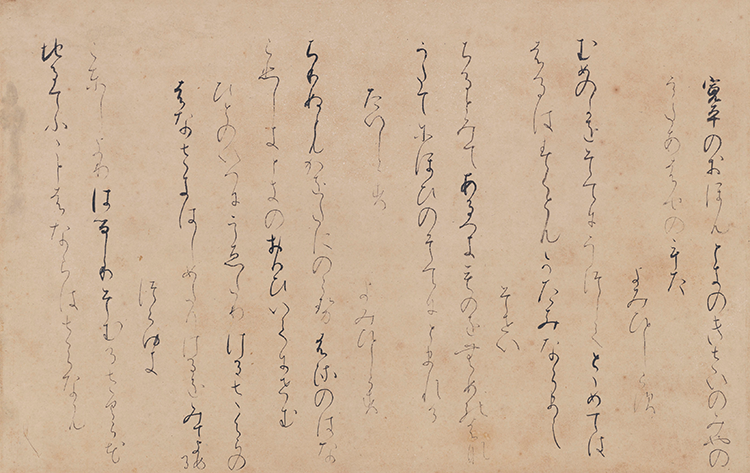 寛平のおほんときのきさいのみやの
うたあはせのうた
よみひとしらす
むめのかをそてにうつしてとゝめては
はるはすくともかたみならまし
そせい
ちるとみてあるへきものをむめのはな
うたてにほひのそてにとまれる
たいしらす
よみひとしらす
ちりぬともかをたにのこせむめのはな
こひしきときのおもひいてにせむ
ひとのいへにうゑたりけるさくらの
はなさきはしめたりけるをみてよめる
つらゆき
ことしよりはるしりそむるさくらはな
ちるてふことはならはさらなん